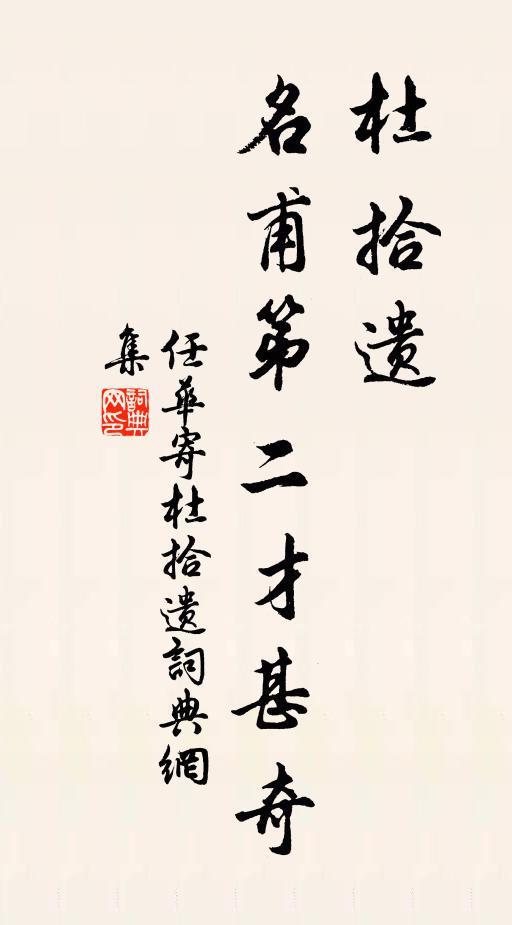 杜拾遺
名甫第二才甚奇
任華寄杜拾遺詞典網
集
詞典
网印